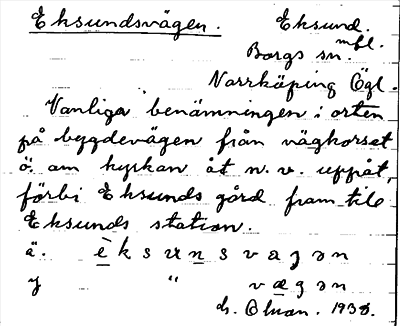 Eksundsvägen. Eksund.
mfl.
Borgs sn.
Norrköping Ögl.
Vanliga benämningen i orten
på bygdevägen från vägkorset
ö. om kyrkan åt n. v. uppåt,
förbi Eksunds gård fram till
Eksunds station.
ä. è k s u n s v a g ə n
y " v æ g ə n
1938.